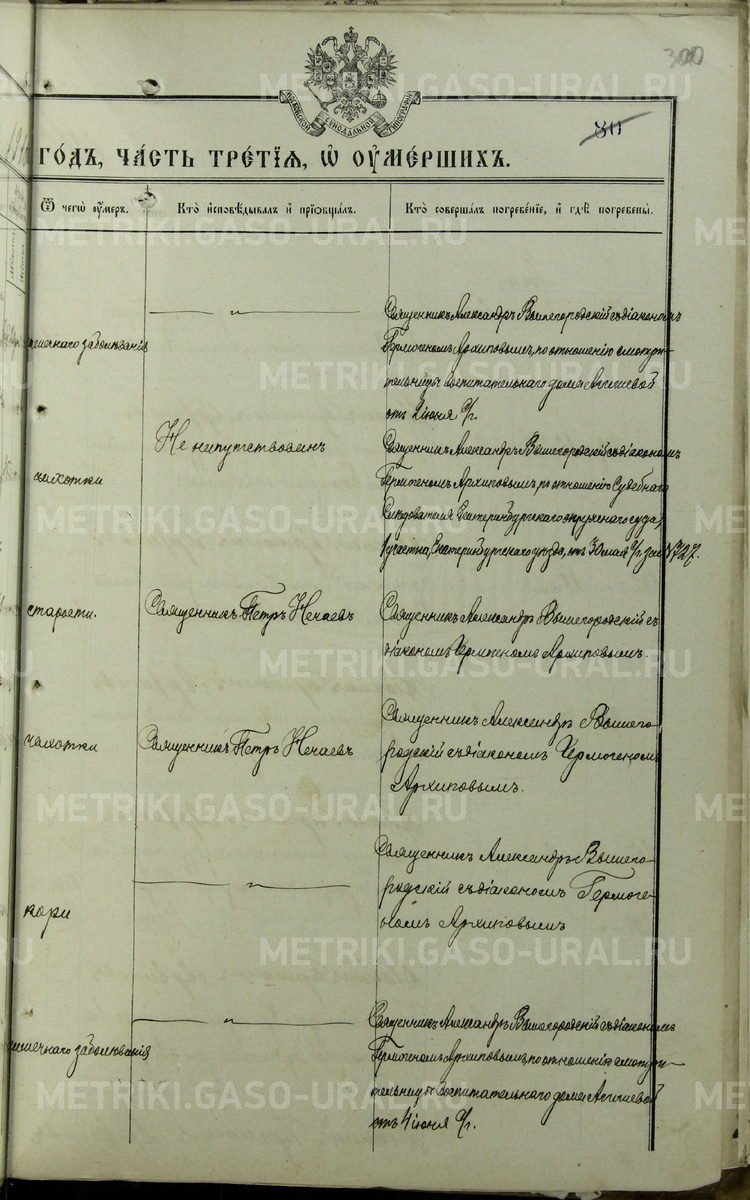 300
МОСКОВСКОЙ СѴНОДАЛЬНОЙ ТИПОГРАФІИ
80
ГО́ДЪ, ЧА́СТЬ ТРЕ́ТІѦ, Ѡ҆ ОУ҆МЕ́РШИХЪ.
Ѿ чегѡ̀ оу҆́меръ.
Кто̀ и҆сповѣ́дывалъ и҆ прїѡбща́лъ.
Кто̀ соверша́лъ погребе́нїе, и҆ гдѣ̀ погребены̀.
заболѣванія
— „ —
Священникъ Александръ Вышегородскій съ діакономъ
Гермогеномъ Архиповымъ, по отношенію смотри-
тельницы воспитательнаго дома Агишевой
отъ 2 іюня с/г.
чахотки
Не напутствованъ
Священникъ Александръ Вышегородскій съ діакономъ
Гермогеномъ Архиповымъ, по отношенію Судебнаго
Слѣдователя Екатеринбургскаго окружнаго суда,
участка, Екатеринбургскаго уѣзда, отъ 30 мая с/г за № 727.
старости.
Священникъ Петръ Нечаевъ
Священникъ Александръ Вышегородскій съ
діакономъ Гермогеномъ Архиповымъ.
чахотки
Священникъ Петръ Нечаевъ
Священникъ Александръ Вышего-
родскій съ діакономъ Гермогеномъ
Архиповымъ.
кори
— „ —
Священникъ Александръ Вышего-
родскій съ діакономъ Гермоге-
номъ Архиповымъ
заболѣванія
— „ —
Священникъ Александръ Вышегородскій съ діакономъ
Гермогеномъ Архиповымъ, по отношенію смотри-
тельницы воспитательнаго дома Агишевой
отъ 4 іюня с/г.
METRIKI.GASO-URAL.RU